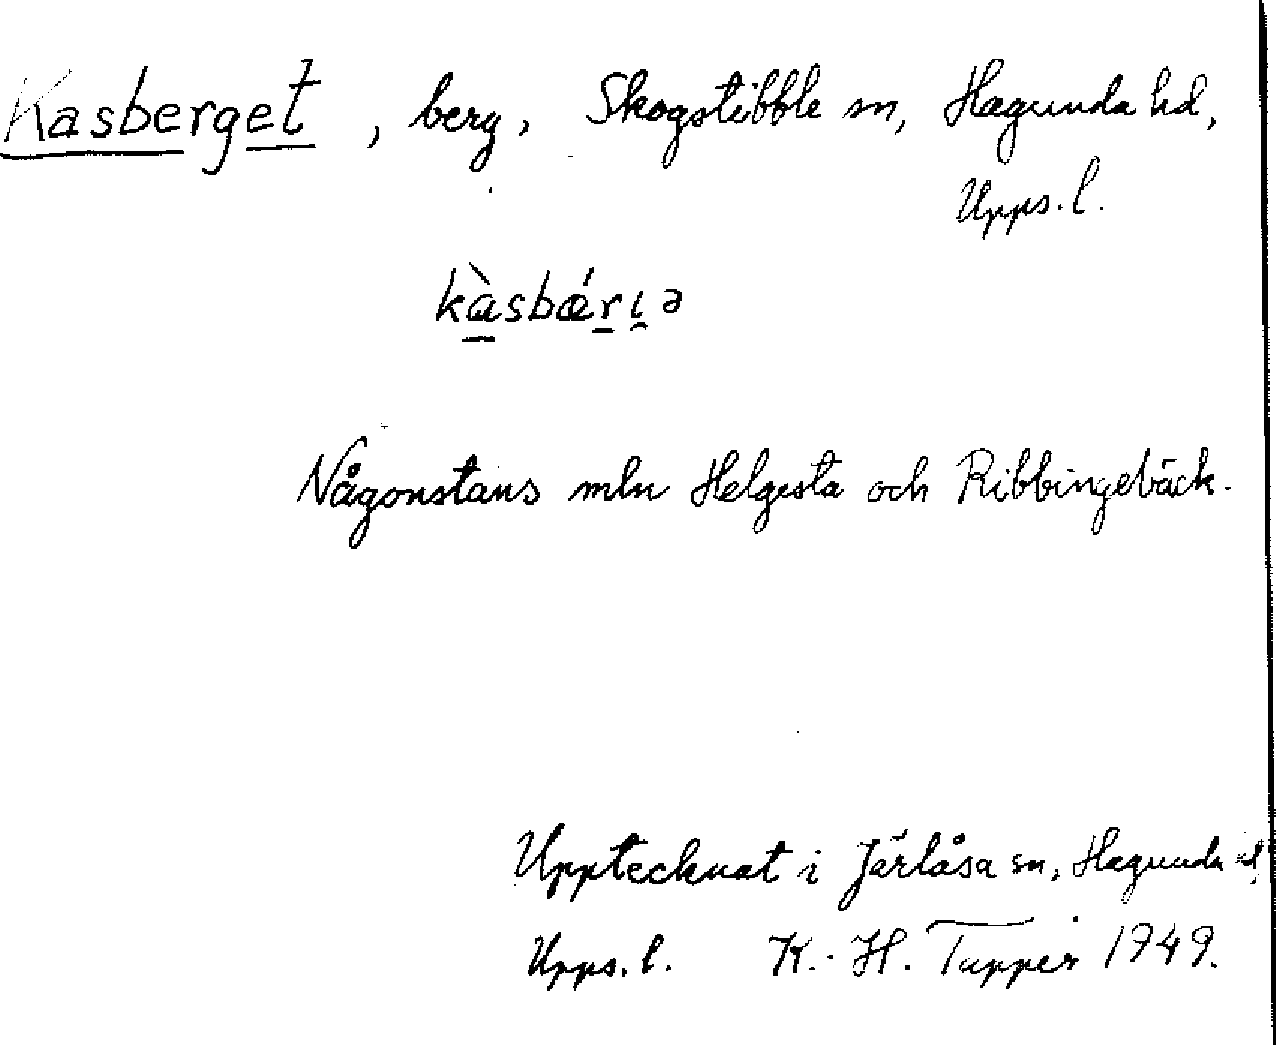 Kasberget, berg, Skogstibble sn, Hagunda hd,
Upps. l.
kàsbǽrı̯ə
Någonstans mln Helgesta och Ribbingebäck.
Upptecknat i Järlåsa sn, Hagunda hd,
Upps. l. K.-H. Tapper 1949.